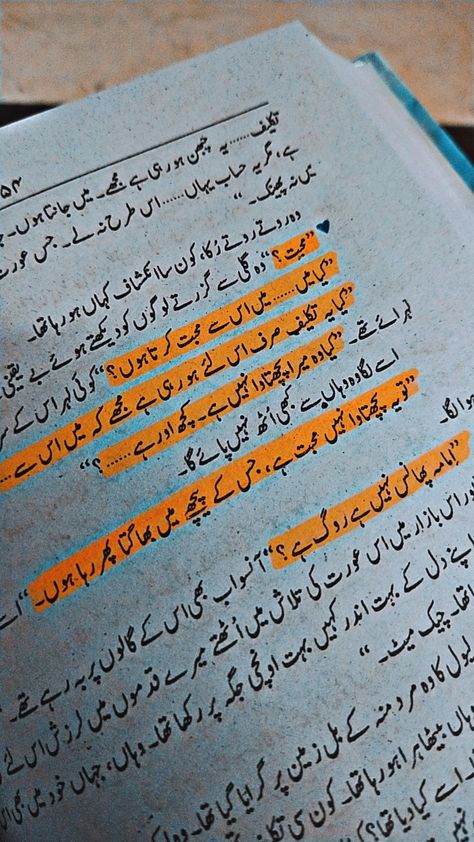 ۵۴
تکلیف......یہ چبھن ہو رہی ہے مجھے۔ میں جانتا ہوں۔
ہے، مگر یہ حساب یہاں......اس طرح نہ لے۔ جس عورت
میں نہ پھینک۔“
وہ روتے روتے رُکا، کون سا انکشاف کہاں ہو رہا تھا۔
”محبت؟“ وہ گلی سے گزرتے لوگوں کو دیکھتے ہوئے بے یقینی
”کیا میں......میں اس سے محبت کرتا ہوں؟“ کوئی لہر اس کے سر
”کیا یہ تکلیف صرف اس لئے ہو رہی ہے مجھے کہ میں اس سے......
لہرائے تھے۔ ”کیا وہ میرا پچھتاوا نہیں ہے۔ کچھ اور ہے......؟“
اسے لگا وہ وہاں سے کبھی اُٹھ نہیں پائے گا۔
”تو یہ پچھتاوا نہیں محبت ہے، جس کے پیچھے میں بھاگتا پھر رہا ہوں۔“ اسے
ہوا لگا۔
”امامہ پھانس نہیں ہے روگ ہے؟“ آنسو اب بھی اس کے گالوں پر بہہ رہے تھے۔
اس بازار میں اس عورت کی تلاش میں اُٹھتے میرے قدموں میں لرزش اس لئے
اپنے دل کے بہت اندر کہیں بہت اونچی جگہ پر رکھا تھا۔ وہاں، جہاں خود میں بھی اس
تھا۔ چیک میٹ۔“
لیول کا وہ مرد منہ کے بل زمین پر گرایا گیا تھا۔ وہ
بیٹھا ہرا ہوا تھا۔ کون سی
اسے کیا دیا تھا؟